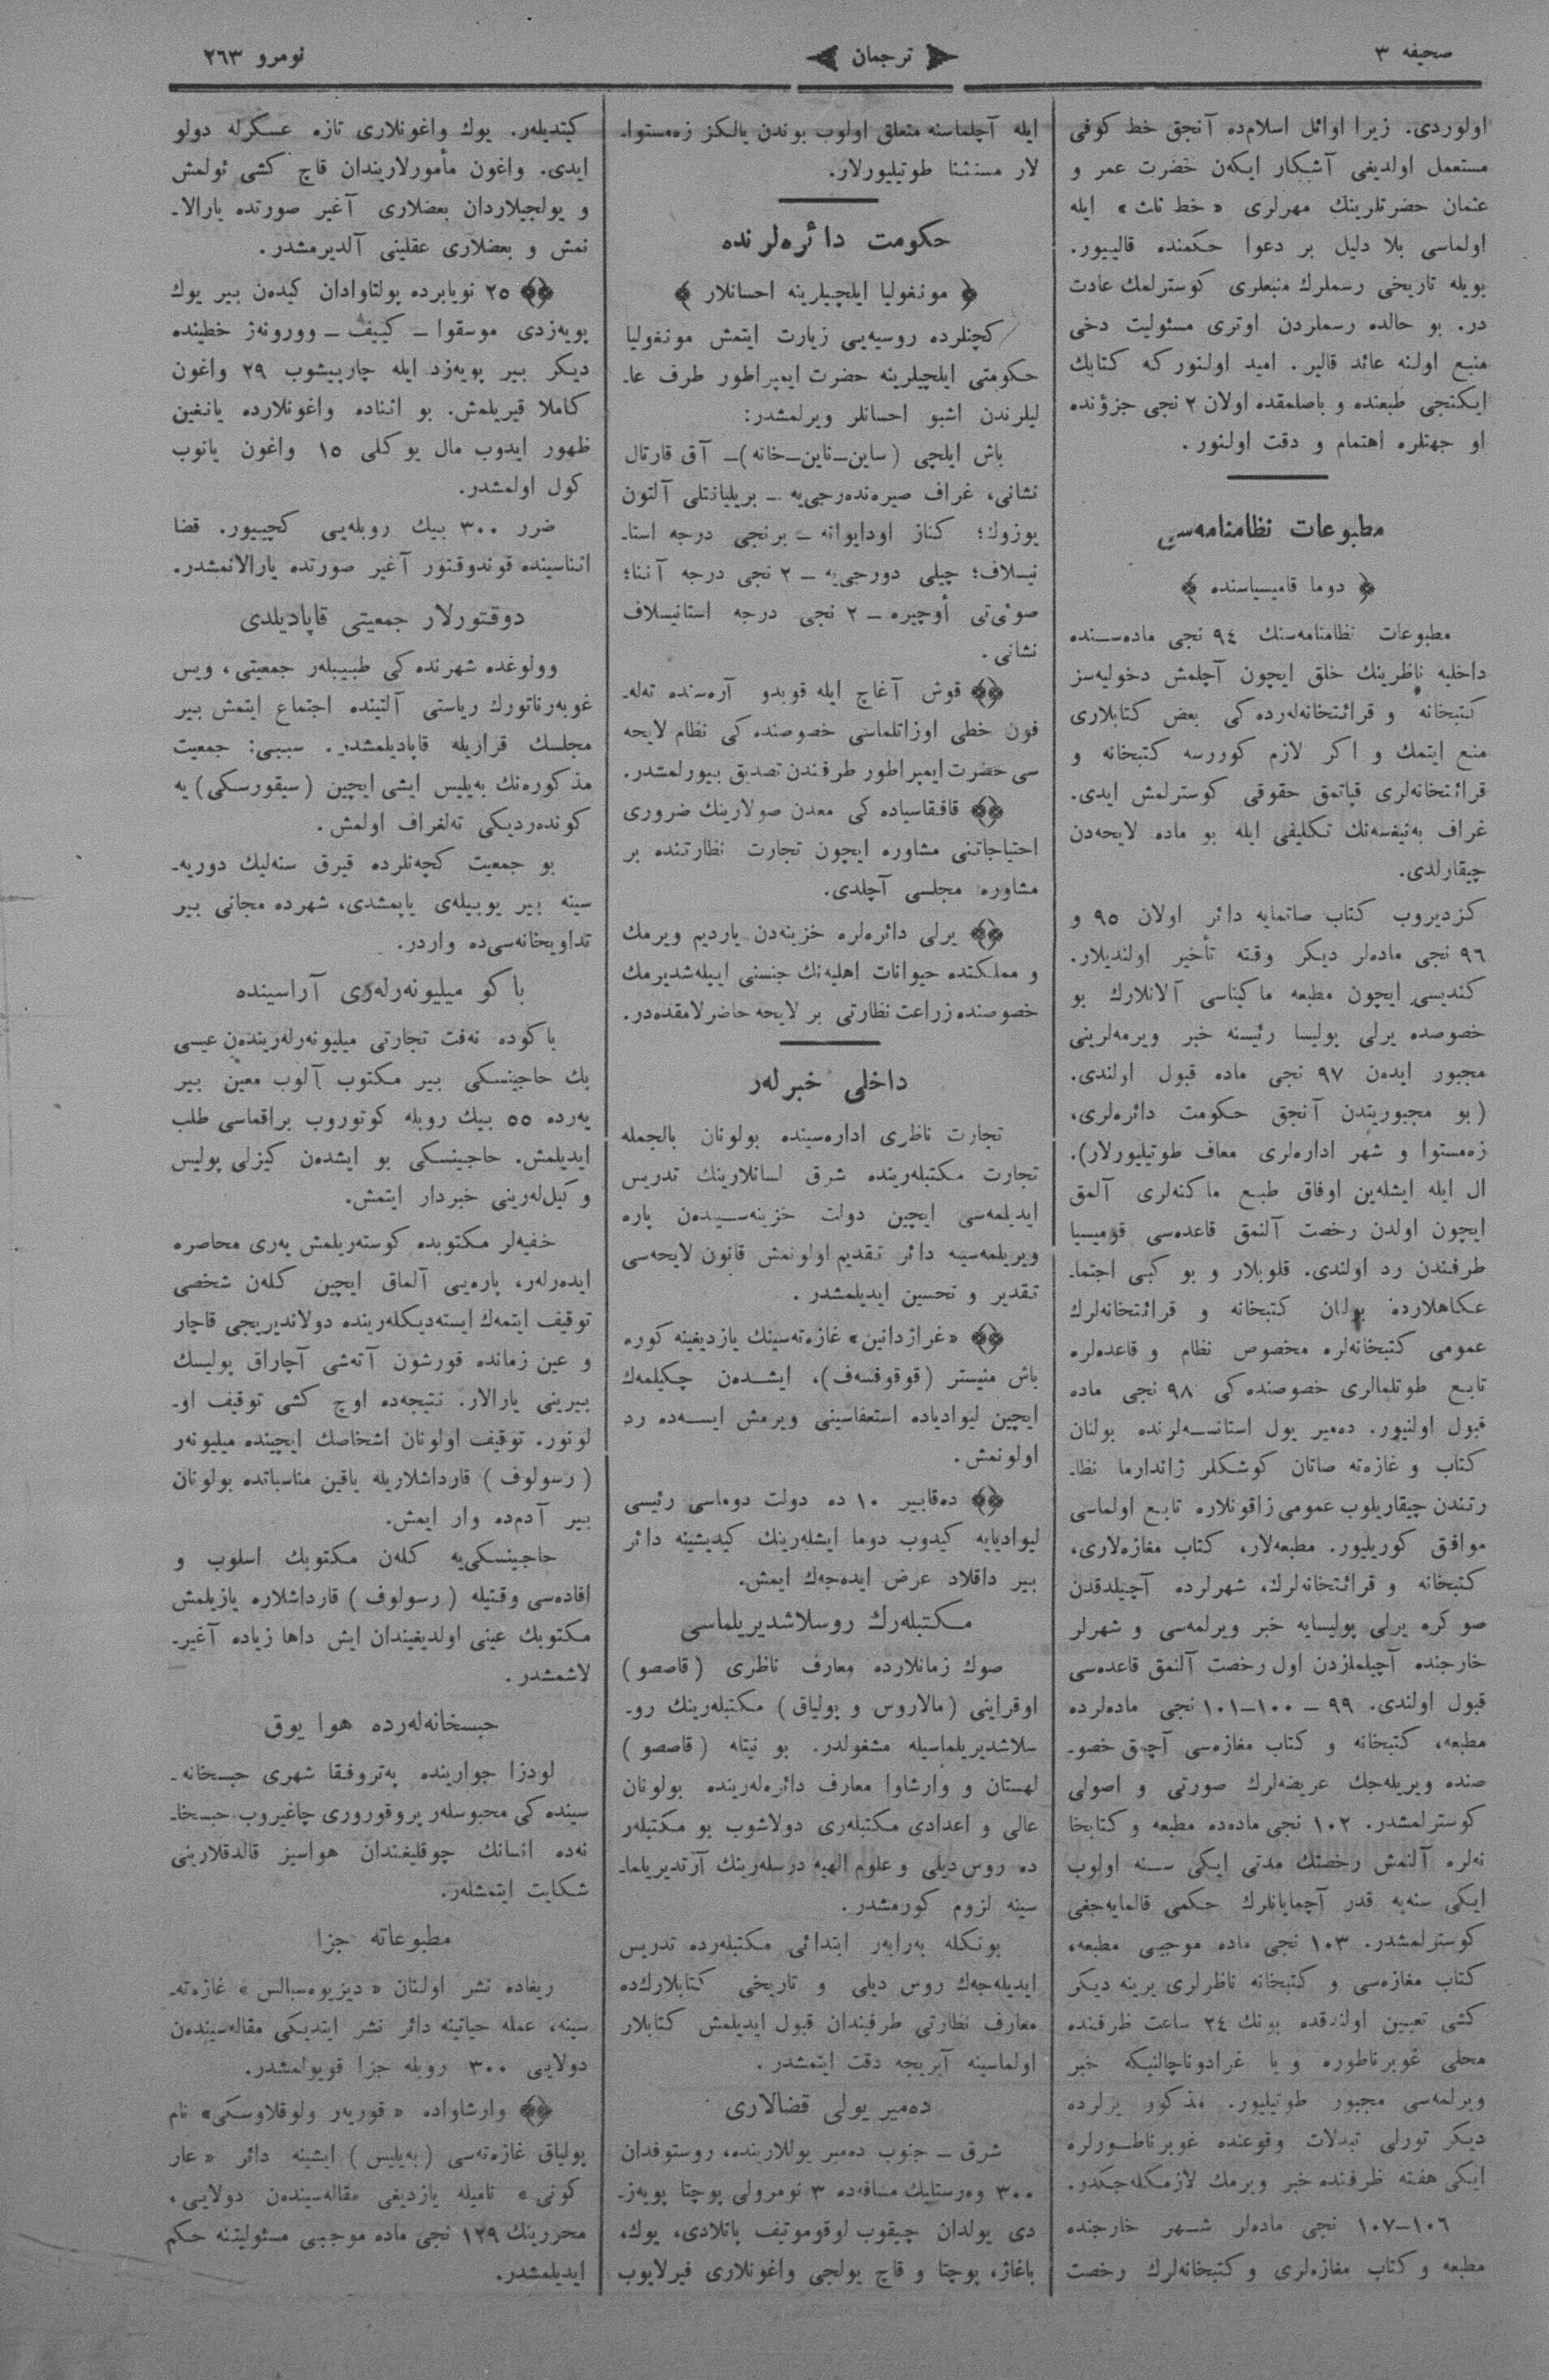 صحیفه ٣
ترجمان
نومرو ٢٦٣
اولوردی. زیرا اوائل اسلامده آنجق خط کوفی
مستعمل اولدیغی آشکار ایکەن حضرت عمر و
عثمان حضرتلرینك مهرلری « خط ثلث » ایله
اولماسی بلا دلیل بر دعوا حکمنده قالییور.
بویله تاریخی رسملرك منبعلری کوسترلمك عادت
در. بو حالده رسملردن اوتری مسئولیت دخی
منبع اولنه عائد قالیر. امید اولنورکه کتابك
ایکنجی طبعنده و باصلمقده اولان ٢ نجی جزؤنده
او جهتلره اهتمام و دقت اولنور.
مطبوعات نظامنامه‌سی
﴿ دوما قامیسیاسنده ﴾
مطبوعات نظامنامه‌سنك ٩٤ نجی ماده‌سنده
داخلیه ناظرینك خلق ایچون آچلمش دخولیه‌سز
کتبخانه و قرائتخانه‌لرده‌کی بعض کتابلاری
منع ایتمك و اکر لازم کوررسه کتبخانه و
قرائتخانه‌لری قپاتمق حقوقی کوسترلمش ایدی.
غراف به‌نیغسه‌نك تکلیفی ایله بو ماده لایحه‌دن
چیقارلدی.
کزدیروب کتاب صاتمایه دائر اولان ٩٥ و
٩٦ نجی ماده‌لر دیکر وقته تأخیر اولندیلار.
کندیسی ایچون مطبعه ماکیناسی آلانلارك بو
خصوصده یرلی پولیسا رئیسنه خبر ویرمه‌لرینی
مجبور ایدەن ٩٧ نجی ماده قبول اولندی.
(بو مجبوریتدن آنجق حکومت دائره‌لری،
زه‌مستوا و شهر اداره‌لری معاف طوتیلیورلار).
ال ایله ایشله‌ین اوفاق طبع ماکنه‌لری آلمق
ایچون اولدن رخصت آلنمق قاعده‌سی قومیسیا
طرفندن رد اولندی. قلوبلار و بو کبی اجتما-
عکاهلارده بولنان کتبخانه و قرائتخانه‌لرك
عمومی کتبخانه‌لره مخصوص نظام و قاعده‌لره
تابع طوتلمالری خصوصنده‌کی ٩٨ نجی ماده
قبول اولنیور. دەمیر یول استانسه‌لرنده بولنان
کتاب و غازه‌ته صاتان کوشکلر ژاندارما نظا-
رتندن چیقاریلوب عمومی زاقونلاره تابع اولماسی
موافق کوریلیور. مطبعه‌لار، کتاب مغازه‌لاری،
کتبخانه و قرائتخانه‌لرك، شهرلرده آچیلدقدن
صوکره یرلی پولیسایه خبر ویرلمه‌سی و شهرلر
خارجنده آچیلملزدن اول رخصت آلنمق قاعده‌سی
قبول اولندی. ٩٩ – ١٠٠–١٠١ نجی ماده‌لرده
مطبعه، کتبخانه و کتاب مغازه‌سی آچمق خصو-
صنده ویریله‌جك عریضه‌لرك صورتی و اصولی
کوسترلمشدر. ١٠٢ نجی ماده‌ده مطبعه و کتابخا
نه‌لره آلنمش رخصتك مدتی ایکی سنه اولوب
ایکی سنه‌یه قدر آچمایانلرك حکمی قالمایه‌جغی
کوسترلمشدر. ١٠٣ نجی ماده موجبی مطبعه،
کتاب مغازه‌سی و کتبخانه ناظرلری یرینه دیکر
کشی تعیین اولندقده بونك ٢٤ ساعت ظرفنده
محلی غوبرناطوره و یا غرادوناچالنیکه خبر
ویرلمه‌سی مجبور طوتیلیور. مذکور یرلرده
دیکر تورلی تبدلات وقوعنده غوبرناطورلره
ایکی هفته ظرفنده خبر ویرمك لازمکله‌جکدر.
١٠٦–١٠٧ نجی ماده‌لر شهر خارجنده
مطبعه و کتاب مغازه‌لری و کتبخانه‌لرك رخصت
ایله آچلماسنه متعلق اولوب بوندن یالکز زه‌مستوا-
لار مستثنا طوتیلیورلار.
حکومت دائره‌لرنده
﴿ مونغولیا ایلچیلرینه احسانلار ﴾
کچنلرده روسیه‌یی زیارت ایتمش مونغولیا
حکومتی ایلچیلرینه حضرت ایمپراطور طرف عا-
لیلرندن اشبو احسانلر ویرلمشدر:
باش ایلچی (ساین–ناین–خانه)– آق قارتال
نشانی، غراف صیره‌نده‌رجی‌یه – بریلیانتلی آلتون
یوزوك؛ کناز اودایوانه – برنجی درجه استا-
نیسلاف؛ چیلی دورجی‌یه – ٢ نجی درجه آننا؛
صوئی‌تی أوچیره – ٢ نجی درجه استانیسلاف
نشانی.
قوش آغاچ ایله قوبدو آره‌سنده ته‌له-
فون خطی اوزاتلماسی خصوصنده‌کی نظام لایحه
سی حضرت ایمپراطور طرفندن تصدیق بیورلمشدر.
قافقاسیاده‌کی معدن صولارینك ضروری
احتیاجاتنی مشاوره ایچون تجارت نظارتنده بر
مشاوره مجلسی آچلدی.
یرلی دائره‌لره خزینه‌دن یاردیم ویرمك
و مملکتده حیوانات اهلیه‌نك جنسنی اییله‌شدیرمك
خصوصنده زراعت نظارتی بر لایحه حاضرلامقده‌در.
داخلی خبرلەر
تجارت ناظری اداره‌سینده بولونان بالجمله
تجارت مکتبله‌رینده شرق لسانلارینك تدریس
ایدیلمه‌سی ایچین دولت خزینه‌سیدەن پاره
ویریلمه‌سینه دائر تقدیم اولونمش قانون لایحه‌سی
تقدیر و تحسین ایدیلمشدر.
«غراژدانین» غازه‌ته‌سینك یازدیغینه کوره
باش منیستر (قوقوفسەف)، ایشدەن چکیلمەك
ایچین لیوادیاده استعفاسینی ویرمش ایسه‌ده رد
اولونمش.
ده‌قابیر ١٠ ده دولت دوماسی رئیسی
لیوادیایه کیدوب دوما ایشله‌رینك کیدیشینه دائر
بیر داقلاد عرض ایده‌جەك ایمش.
مکتبله‌رك روسلاشدیریلماسی
صوك زمانلارده معارف ناظری (قاصصو)
اوقراینی (مالاروس و پولیاق) مکتبله‌رینك رو-
سلاشدیریلماسیله مشغولدر. بو نیتله (قاصصو)
لهستان و وارشاوا معارف دائره‌له‌رینده بولونان
عالی و اعدادی مکتبله‌ری دولاشوب بو مکتبلەر
ده روس دیلی و علوم الهیه درسله‌رینك آرتدیریلما-
سینه لزوم کورمشدر.
بونکله به‌رابەر ابتدائی مکتبله‌رده تدریس
ایدیله‌جەك روس دیلی و تاریخی کتابلارك‌ده
معارف نظارتی طرفیندان قبول ایدیلمش کتابلار
اولماسینه آیریجه دقت ایتمشدر.
دەمیر یولی قضالاری
شرق – جنوب دەمیر یوللارینده، روستوفدان
٣٠٠ وه‌رستلیك مسافه‌ده ٣ نومرولی پوچتا پویه‌ز-
دی یولدان چیقوب لوقوموتیف پاتلادی، یوك،
باغاژ، پوچتا و قاچ یولجی واغونلاری قیرلایوب
کیتدیلەر. یوك واغونلاری تازه عسکرله دولو
ایدی. واغون مأمورلاریندان قاچ کشی ئولمش
و یولجیلاردان بعضلاری آغیر صورتده یارالا-
نمش و بعضلاری عقلینی آلدیرمشدر.
٢٥ نویابرده پولتاوادان کیدەن بیر یوك
پویه‌زدی موسقوا – کییف – وورونه‌ژ خطینده
دیکر بیر پویه‌زد ایله چارپیشوب ٢٩ واغون
کاملا قیریلمش. بو اثناده واغونلارده یانغین
ظهور ایدوب مال یوکلی ١٥ واغون یانوب
کول اولمشدر.
ضرر ٣٠٠ بیك روبله‌یی کچییور. قضا
اثناسینده قوندوقتور آغیر صورتده یارالانمشدر.
دوقتورلار جمعیتی قاپادیلدی
وولوغده شهرنده‌کی طبیبلەر جمعیتی، ویس
غوبه‌رناتورك ریاستی آلتینده اجتماع ایتمش بیر
مجلسك قراریله قاپادیلمشدر. سببی: جمعیت
مذکوره‌نك به‌یلیس ایشی ایچین (سیقورسکی) یه
کونده‌ردیکی ته‌لغراف اولمش.
بو جمعیت کچه‌نلرده قیرق سنه‌لیك دوریه-
سینه بیر یوبیله‌ی یاپمشدی، شهرده مجانی بیر
تداویخانه‌سی‌ده واردر.
باکو میلیونه‌رله‌ری آراسینده
باکوده نه‌فت تجارتی میلیونه‌رله‌ریندەن عیسی
بك حاجینسکی بیر مکتوب آلوب معین بیر
یەرده ٥٥ بیك روبله کوتوروب براقماسی طلب
ایدیلمش. حاجینسکی بو ایشدەن کیزلی پولیس
وکیل‌له‌رینی خبردار ایتمش.
خفیه‌لر مکتوبده کوسته‌ریلمش یەری محاصره
ایده‌رلەر، پاره‌یی آلماق ایچین کلەن شخصی
توقیف ایتمەك ایسته‌دیکله‌رینده دولاندیریجی قاچار
و عین زمانده قورشون آتەشی آچاراق پولیسك
بیرینی یارالار. نتیجه‌ده اوچ کشی توقیف او-
لونور. توقیف اولونان اشخاصك ایچینده میلیونەر
(رسولوف) قارداشلاریله یاقین مناسباتده بولونان
بیر آدم‌ده وار ایمش.
حاجینسکی‌یه کلەن مکتوبك اسلوب و
افاده‌سی وقتیله (رسولوف) قارداشلاره یازیلمش
مکتوبك عینی اولدیغیندان ایش داها زیاده آغیر-
لاشمشدر.
حبسخانه‌لەرده هوا یوق
لودزا جوارینده په‌تروفقا شهری حبسخانه-
سینده‌کی محبوسلەر پروقوروری چاغیروب حبسخا-
نه‌ده انسانك چوقلیغندان هواسیز قالدقلارینی
شکایت ایتمشلەر.
مطبوعاته جزا
ریغاده نشر اولنان « دیزیوه‌سبالس » غازه‌ته-
سینه، عمله حیاتینه دائر نشر ایتدیکی مقاله‌سیندەن
دولایی ٣٠٠ روبله جزا قویولمشدر.
وارشاواده « قوریەر ولوقلاوسکی» نام
پولیاق غازه‌ته‌سی (به‌یلیس) ایشینه دائر « عار
کونی » نامیله یازدیغی مقاله‌سیندەن دولایی،
محررینك ١٢٩ نجی ماده موجبی مسئولیتنه حکم
ایدیلمشدر.